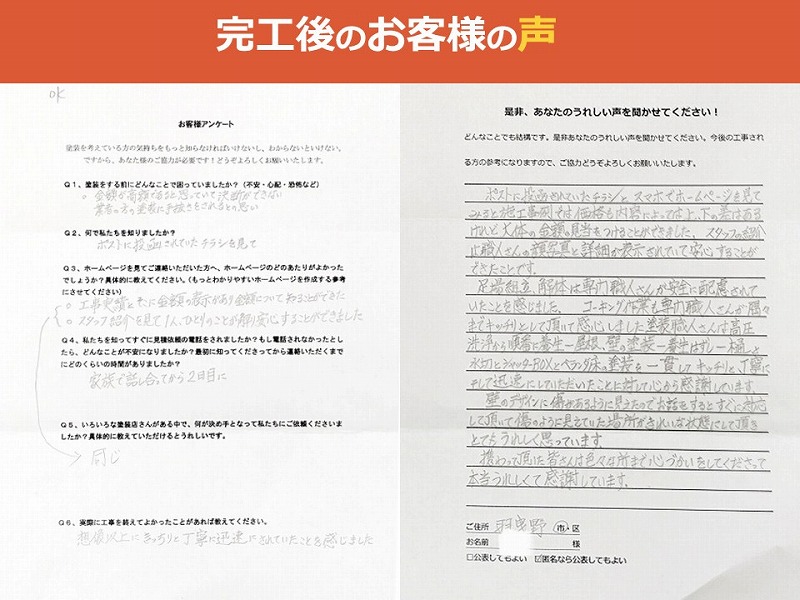 完工後のお客様の声
OK
お客様アンケート
塗装を考えている方の気持ちをもっと知らなければいけないし、わからないといけない。
ですから、あなた様のご協力が必要です!どうぞよろしくお願いいたします。
Q1、塗装をする前にどんなことで困っていましたか?(不安・心配・恐怖など)
○ 金額が高額であると思っていて決断ができない
業者の方の塗装に手抜きをされるとの思い
Q2、何で私たちを知りましたか?
ポストに投函されていたチラシを見て
Q3、ホームページを見てご連絡いただいた方へ、ホームページのどのあたりがよかった
でしょうか?具体的に教えてください。(もっとわかりやすいホームページを作成する参考
にさせてください)
○ 工事実績とともに金額の表示があり金額について知ることができた
○ スタッフ紹介を見て1人、ひとりのことが解り安心することができました
Q4、私たちを知ってすぐに見積依頼の電話をされましたか?もし電話されなかったとし
たら、どんなことが不安になりましたか?最初に知ってくださってから連絡いただくまで
にどのくらいの時間がありましたか?
家族で話し合ってから2日目に
Q5、いろいろな塗装店さんがある中で、何が決め手となって私たちにご依頼くださいま
したか?具体的に教えていただけるとうれしいです。
同じ
Q6、実際に工事を終えてよかったことがあれば教えてください。
想像以上にきっちりと丁寧に迅速にされていたことを感じました
是非、あなたのうれしい声を聞かせてください!
どんなことでも結構です。是非あなたのうれしい声を聞かせてください。今後の工事され
る方の参考になりますので、ご協力どうぞよろしくお願いいたします。
ポストに投函されていたチラシとスマホでホームページを見て
みると施工事例では価格も内容によっては上、下の差はある
けれど大体の金額の見当をつけることができました。スタッフの紹介
は職人さんの顔写真と詳細が表示されていて安心することが
できたことです。
足場組立、解体は専門職人さんが安全に配慮されて
いたことを感じました。 コーキング作業も専門職人さんが隅々
までキッチリとして頂いて感心しました塗装職人さんは高圧
洗浄から順番に養生―屋根、壁の塗装―養生はずし―樋―
水切とシャッターBOXとベランダ床の塗装を一貫してキッチリと丁寧に
そして迅速にしていただいたことに対して心から感謝しています。
壁のデザインに傷があるように見えたのでお話をするとすぐに対応
して頂いて傷のように見えていた場所がきれいな状態にして頂き
とてもうれしく思っています。
携わって頂いた皆さんは色々な所まで心づかいをしてくださって
本当うれしくて感謝しています。
ご住所 羽曳野 市・区
お名前 様
□公表してもよい ☑匿名なら公表してもよい